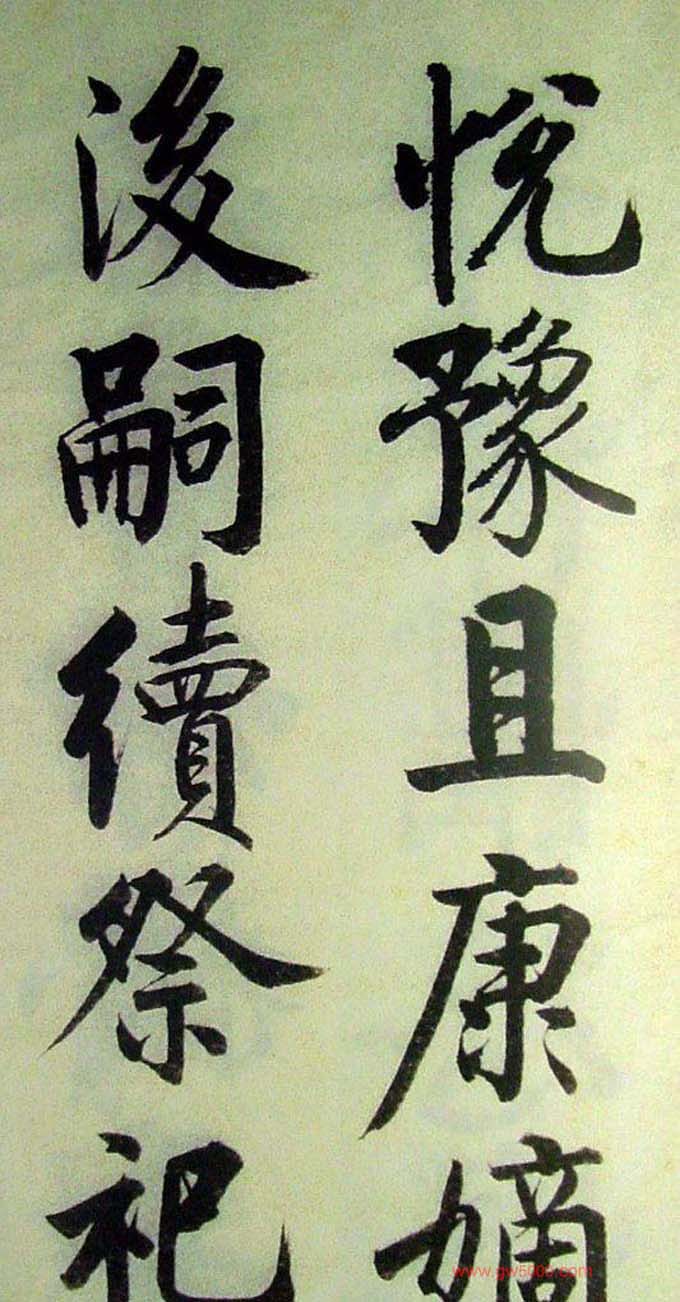 悅豫且康嫡
後嗣續祭祀
www.gw5000.com